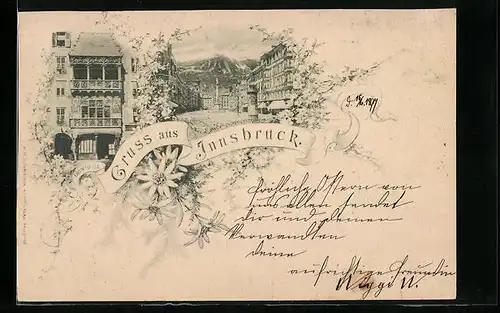 Gruss aus
Innsbruck.
fröhliche Ostern von
uns allen sendet
dir und deinen
Verwandten
deine
aufrichtige Freundin